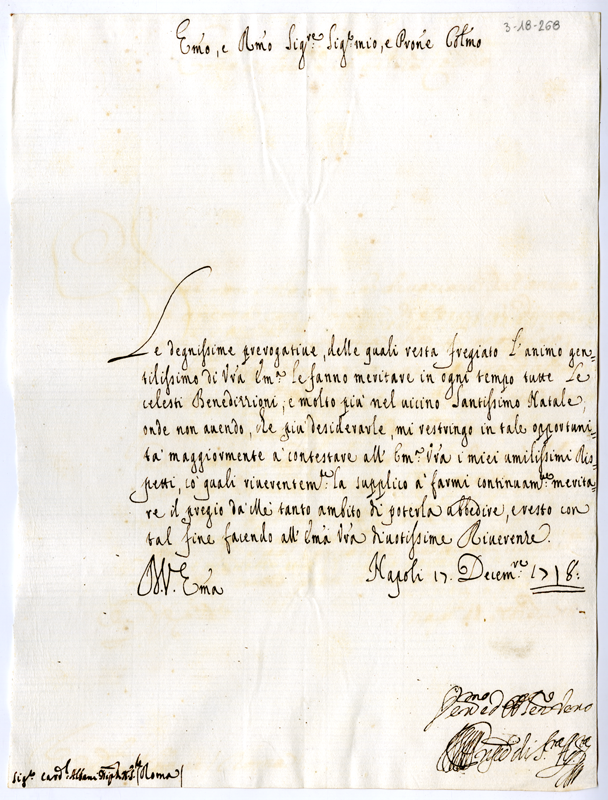 3-18-268
Emo, e Rmo Sigre Sigr mio, e Prone Colmo
Le degnissime prerogatiue, delle quali resta fregiato L'animo gen=
tilissimo di Vra Emza le fanno meritare in ogni tempo tutte Le
celesti Benedizzioni, e molto più nel uicino Santissimo Natale,
onde non auendo, che più desiderarle, mi restringo in tale opportuni=
tà maggiormente à contestare all' Emza Vra i miei umilissimi Ris=
petti, co' quali riuerentemte la supplico à farmi continuamte merita=
re il pregio da Mé tanto ambito di poterla obbedire, e resto con
tal fine facendo all' Emà Vra diuotissime Riuerenze.
D. V. Ema
Napoli 17. Decemre 1718:
Sigr Cardl Albani (Roma)